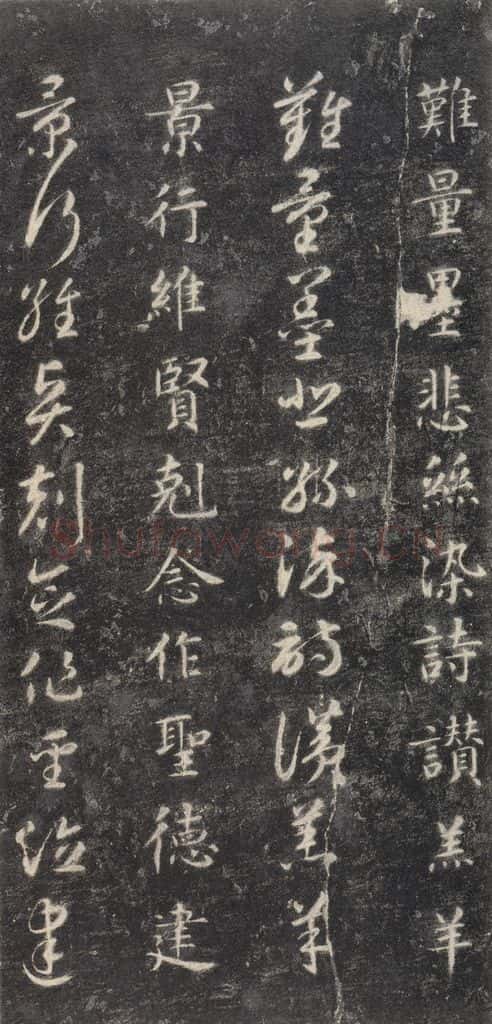 難量墨悲絲染詩讃羔羊
難量墨悲絲染詩讃羔羊
景行維賢剋念作聖德建
景行維賢剋念作聖德建
Shufawang.cn